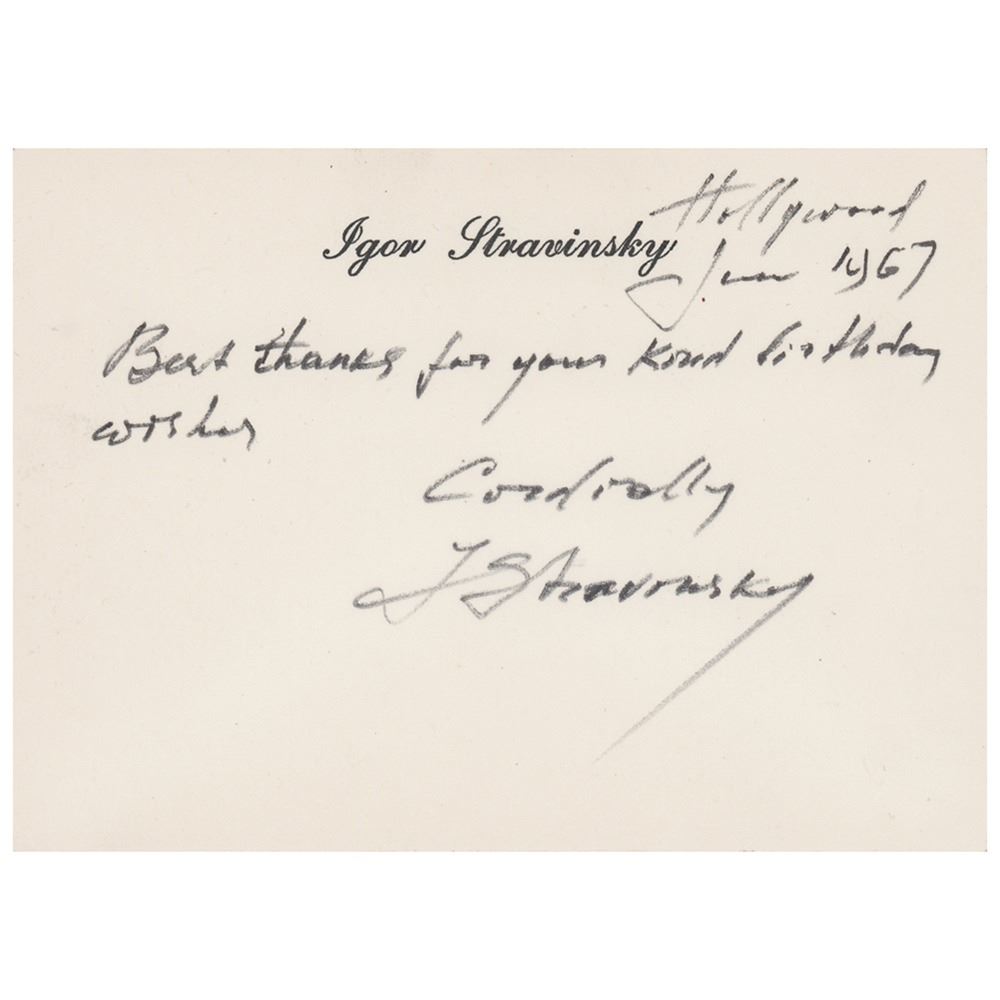 Hollywood
Igor Stravinsky
June 1967
Best thanks for your kind birthday
wishes
Cordially
I Stravinsky